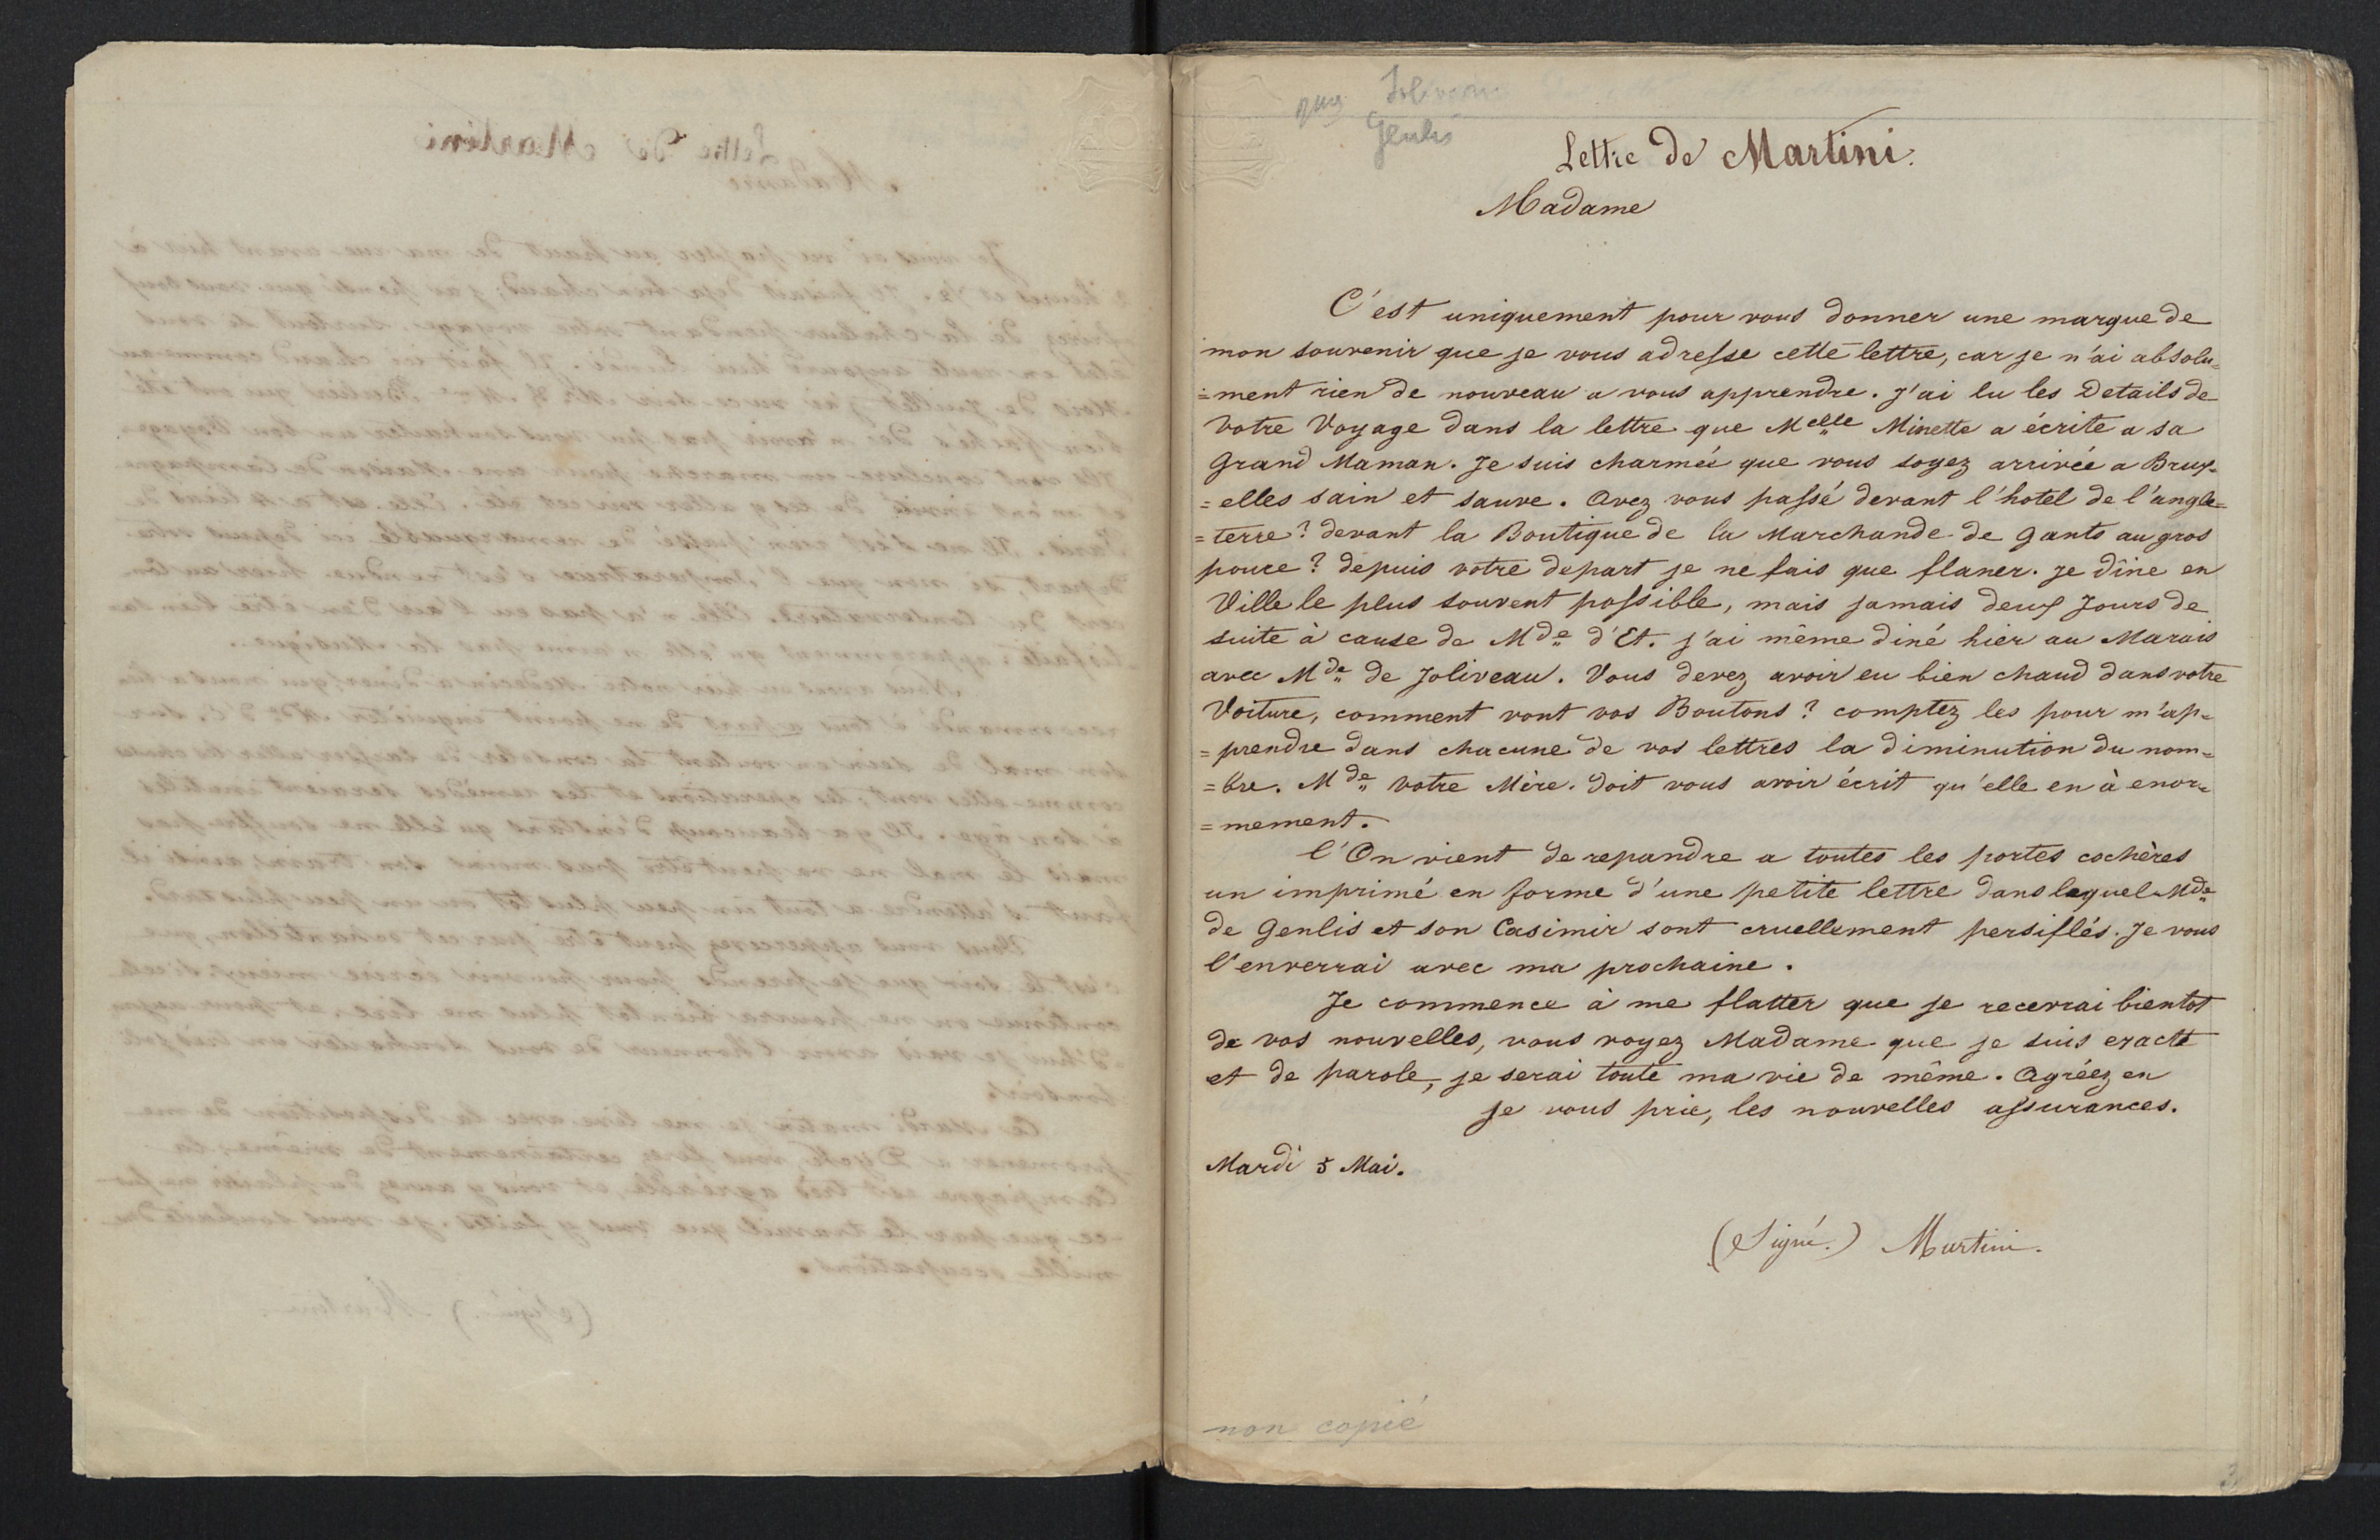 Genlis
Lettre de Martini.
Madame
C'est uniquement pour vous donner une marque de
mon souvenir que je vous adresse cette lettre, car je n'ai absolu=
=ment rien de nouveau a vous apprendre. J'ai lu les Details de
votre Voyage dans la lettre que Melle Minette a écrite a sa
Grand Maman. Je suis charmée que vous soyez arrivée a Brux=
=elles sain et sauve. Avez vous passé devant l'hotel de l'angle=
=terre? devant la Boutique de la Marchande de gants au gros
pouce? depuis votre depart je ne fais que flaner. je dîne en
Ville le plus souvent possible, mais jamais deux Jours de
suite à cause de Mde d'Et. j'ai même diné hier au Marais
avec Mde de Joliveau. Vous devez avoir eu bien chaud dans votre
Voiture, comment vont vos Boutons? comptez les pour m'ap=
=prendre dans chacune de vos lettres la diminution du nom=
=bre. Mde votre Mère. doit vous avoir écrit qu'elle en à enor=
=mement.
l'On vient de repandre a toutes les portes cochères
un imprimé en forme d'une petite lettre dans lequel Mde
de Genlis et son Casimir sont cruellement persiflés. Je vous
l'enverrai avec ma prochaine.
Je commence à me flatter que je recevrai bientot
de vos nouvelles, vous voyez Madame que je suis exacte
et de parole, je serai toute ma vie de même. Agréez en
je vous prie, les nouvelles assurances.
Mardi 5 Mai.
(Signé.) Martini.
non copié